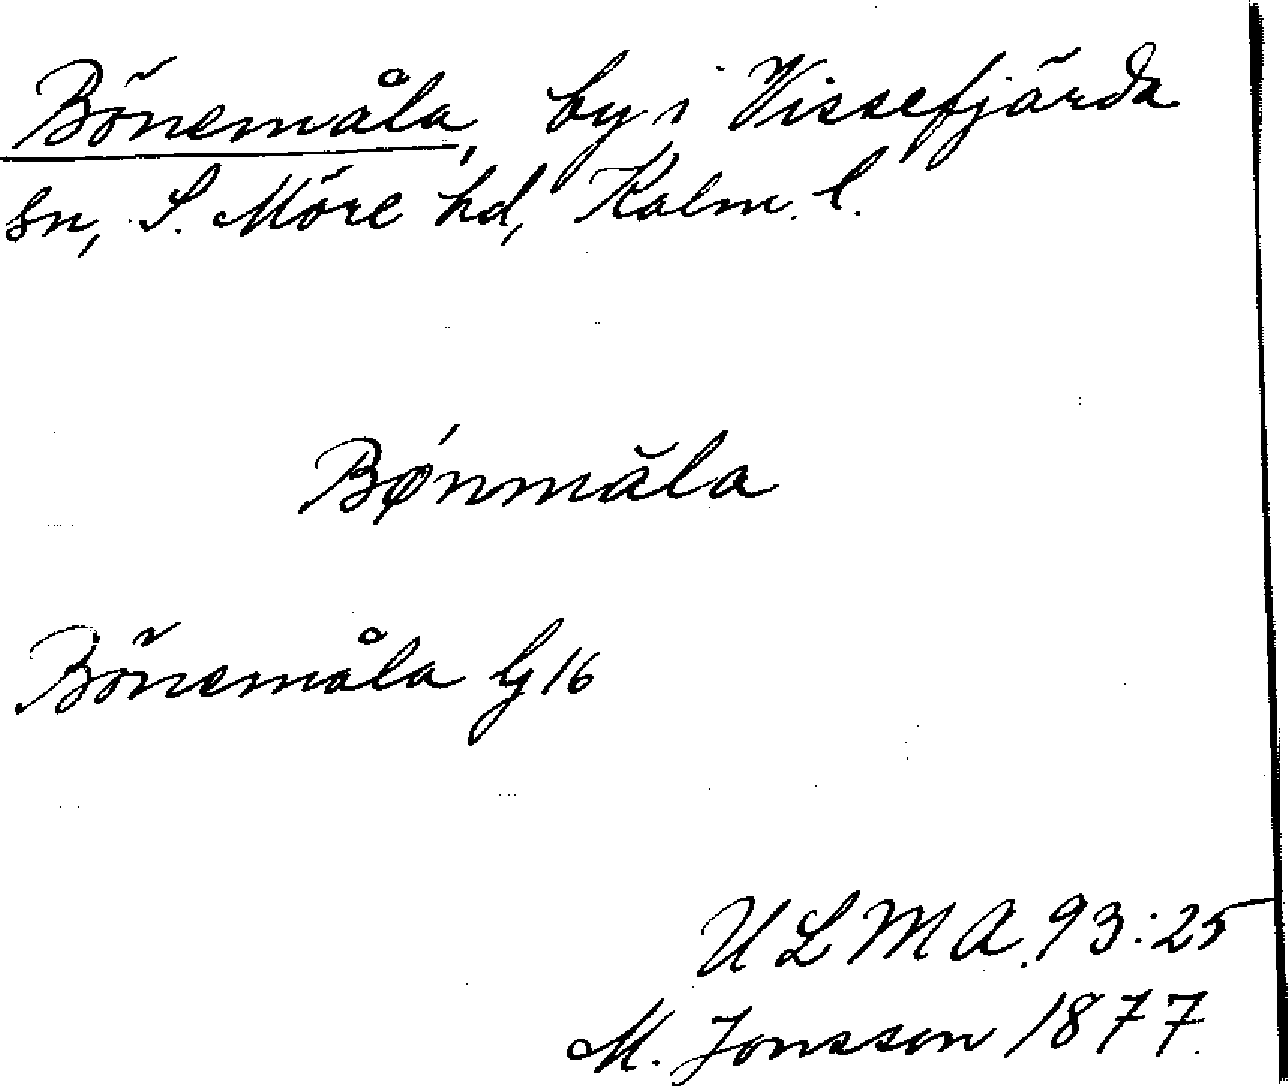 Bönemåla, by i Vissefjärda
sn, S. Möre hd, Kalm. l.
Bǿnmåla
Bönemåla G16
ULMA. 93:25
M. Jonsson 1877.